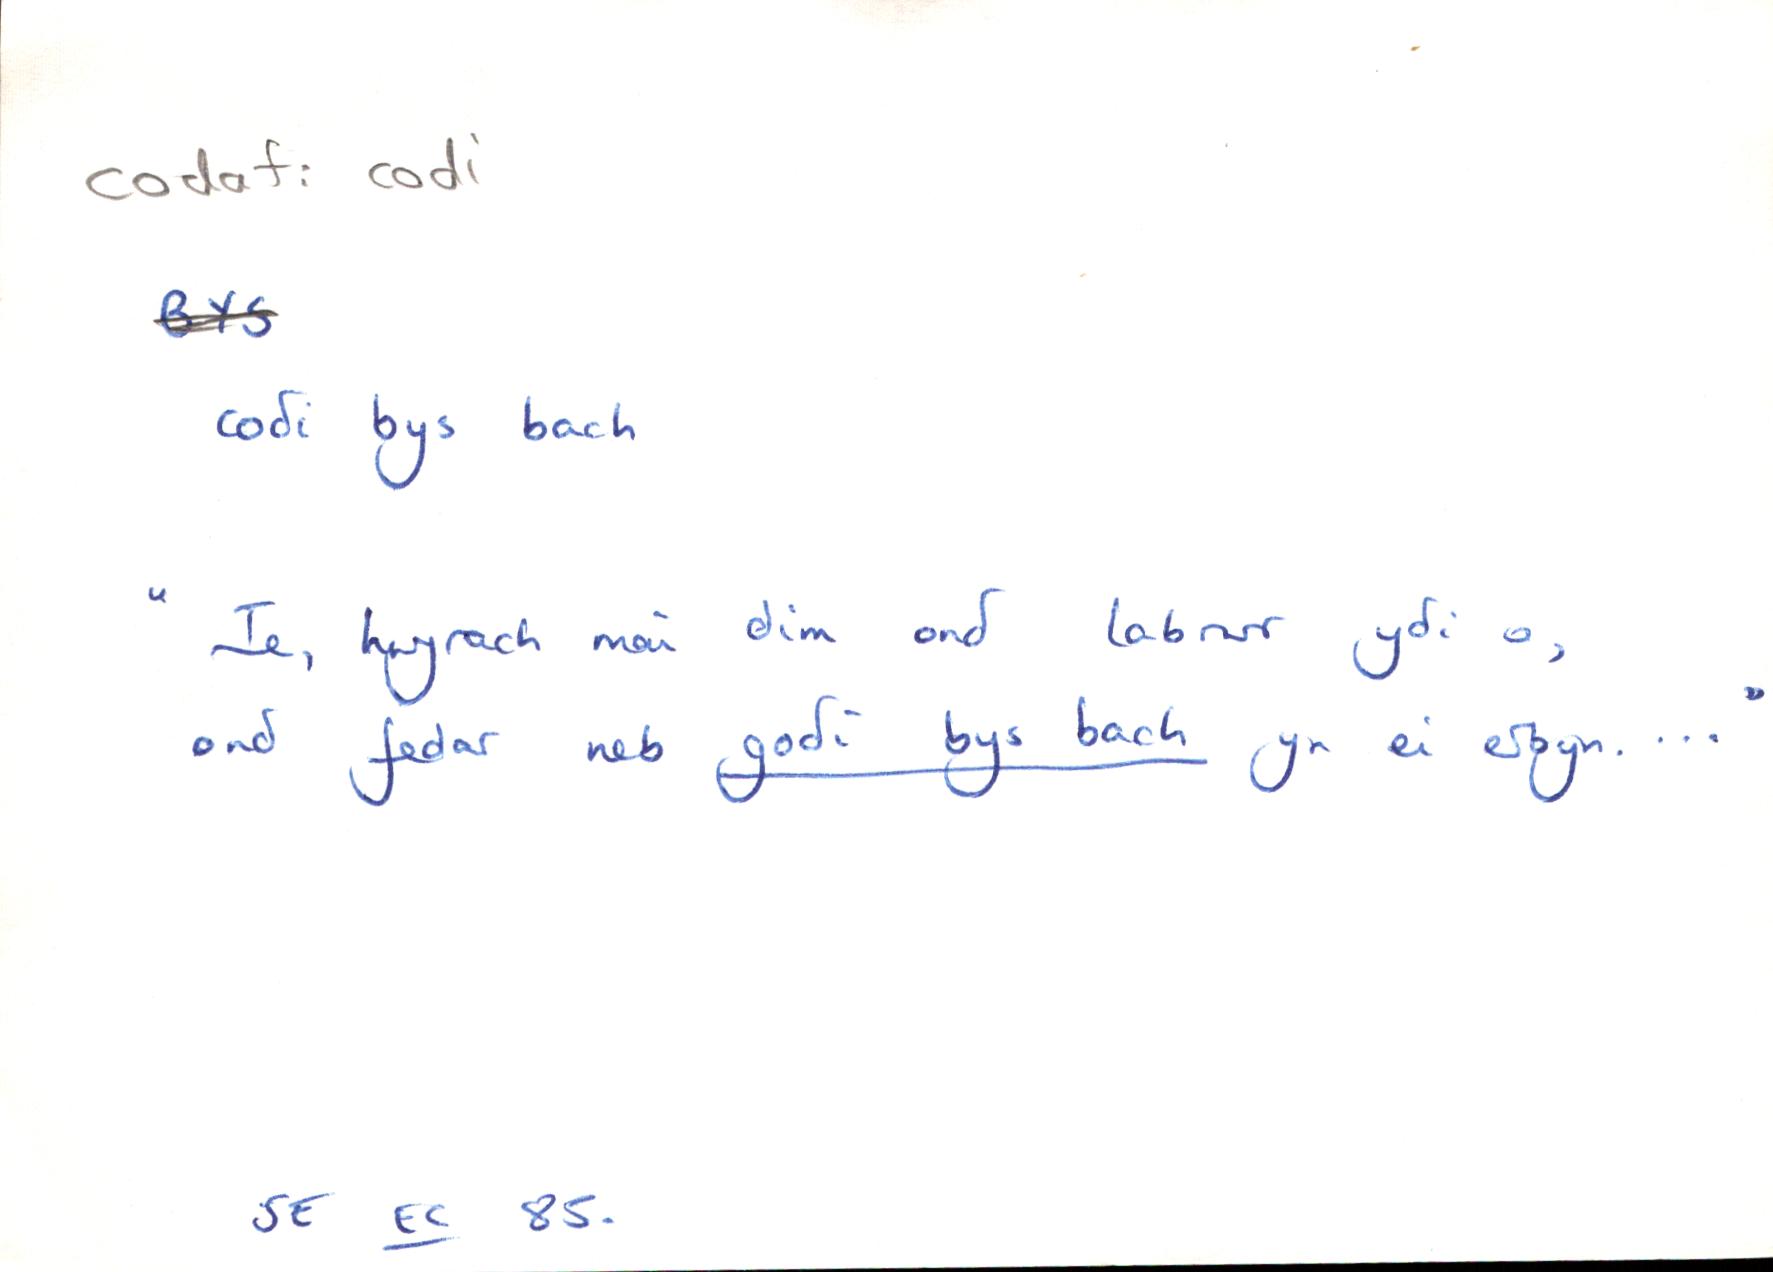 codaf: codi
BYS
codi bys bach
"Ie, hwyrach mai dim ond labrwr ydi o,
ond fedar neb godi bys bach yn ei erbyn. ..."
SE EC 85.